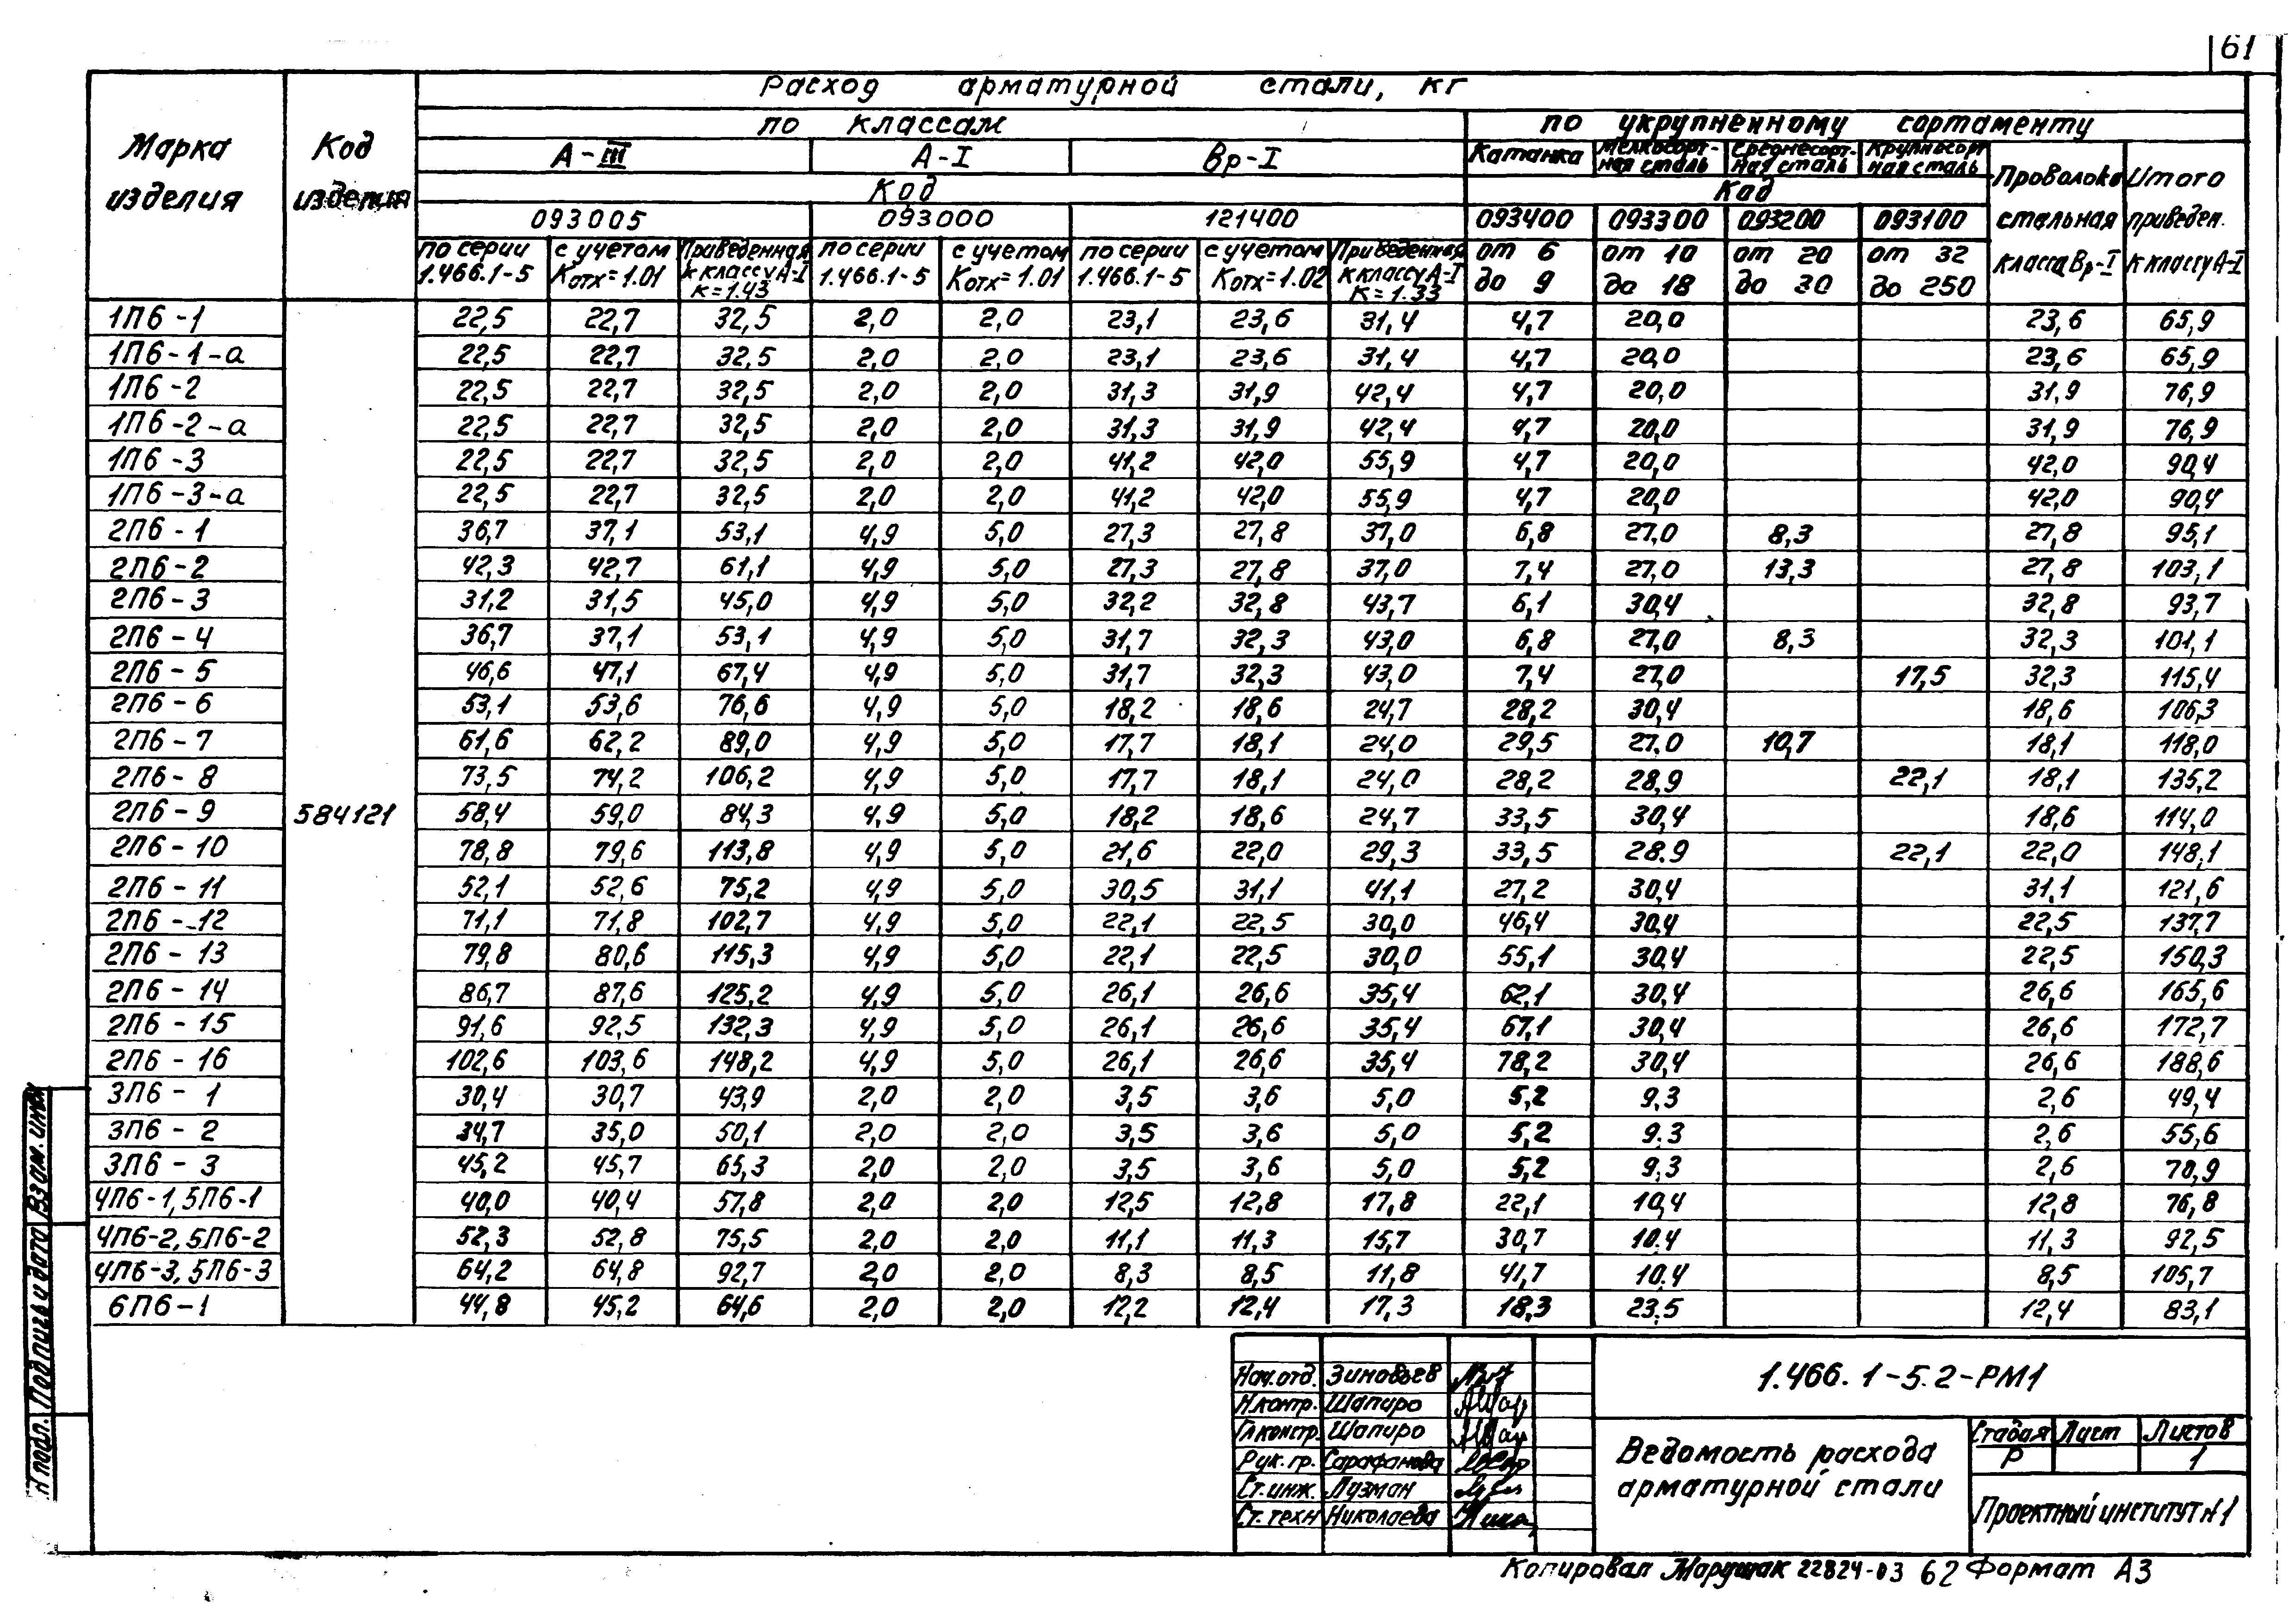 61
Расход арматурной стали, кг
Марка изделия
Код изделия
по классам
по укрупненному сортаменту
А-III А-I Вр-I Катанка Мелкосорт-ная сталь Среднесорт-ная сталь Крупносорт ная сталь Проволока стальная класса Вр-I Итого приведен. к классу А-I
Код Код
093005 093000 121400 093400 093300 093200 093100
по серии 1.466.1-5 с учетом Котх=1.01 Приведенная к классу А-I К=1.43 по серии 1.466.1-5 с учетом Котх=1.01 по серии 1.466.1-5 с учетом Котх=1.02 Приведенная к классу А-I К=1.33 от 6 до 9 от 10 до 18 от 20 до 30 от 32 до 250
1П6-1 22,5 22,7 32,5 2,0 2,0 23,1 23,6 31,4 4,7 20,0 23,6 65,9
1П6-1-а 22,5 22,7 32,5 2,0 2,0 23,1 23,6 31,4 4,7 20,0 23,6 65,9
1П6-2 22,5 22,7 32,5 2,0 2,0 31,3 31,9 42,4 4,7 20,0 31,9 76,9
1П6-2-а 22,5 22,7 32,5 2,0 2,0 31,3 31,9 42,4 4,7 20,0 31,9 76,9
1П6-3 22,5 22,7 32,5 2,0 2,0 41,2 42,0 55,9 4,7 20,0 42,0 90,4
1П6-3-а 22,5 22,7 32,5 2,0 2,0 41,2 42,0 55,9 4,7 20,0 42,0 90,4
2П6-1 36,7 37,1 53,1 4,9 5,0 27,3 27,8 37,0 6,8 27,0 8,3 27,8 95,1
2П6-2 42,3 42,7 61,1 4,9 5,0 27,3 27,8 37,0 7,4 27,0 13,3 27,8 103,1
2П6-3 31,2 31,5 45,0 4,9 5,0 32,2 32,8 43,7 6,1 30,4 32,8 93,7
2П6-4 36,7 37,1 53,1 4,9 5,0 31,7 32,3 43,0 6,8 27,0 8,3 32,3 101,1
2П6-5 46,6 47,1 67,4 4,9 5,0 31,7 32,3 43,0 7,4 27,0 17,5 32,3 115,4
2П6-6 53,1 53,6 76,6 4,9 5,0 18,2 18,6 24,7 28,2 30,4 18,6 106,3
2П6-7 61,6 62,2 89,0 4,9 5,0 17,7 18,1 24,0 29,5 27,0 10,7 18,1 118,0
2П6-8 73,5 74,2 106,2 4,9 5,0 17,7 18,1 24,0 28,2 28,9 22,1 18,1 135,2
2П6-9 584121 58,4 59,0 84,3 4,9 5,0 18,2 18,6 24,7 33,5 30,4 18,6 114,0
2П6-10 78,8 79,6 113,8 4,9 5,0 21,6 22,0 29,3 33,5 28.9 22,1 22,0 148,1
2П6-11 52,1 52,6 75,2 4,9 5,0 30,5 31,1 41,1 27,2 30,4 31,1 121,6
2П6-12 71,1 71,8 102,7 4,9 5,0 22,1 22,5 30,0 46,4 30,4 22,5 137,7
2П6-13 79,8 80,6 115,3 4,9 5,0 22,1 22,5 30,0 55,1 30,4 22,5 150,3
2П6-14 86,7 87,6 125,2 4,9 5,0 26,1 26,6 35,4 62,1 30,4 26,6 165,6
2П6-15 91,6 92,5 132,3 4,9 5,0 26,1 26,6 35,4 67,1 30,4 26,6 172,7
2П6-16 102,6 103,6 148,2 4,9 5,0 26,1 26,6 35,4 78,2 30,4 26,6 188,6
3П6-1 30,4 30,7 43,9 2,0 2,0 3,5 3,6 5,0 5,2 9,3 2,6 49,4
3П6-2 34,7 35,0 50,1 2,0 2,0 3,5 3,6 5,0 5,2 9.3 2,6 55,6
3П6-3 45,2 45,7 65,3 2,0 2,0 3,5 3,6 5,0 5,2 9,3 2,6 70,9
4П6-1, 5П6-1 40,0 40,4 57,8 2,0 2,0 12,5 12,8 17,8 22,1 10,4 12,8 76,8
4П6-2, 5П6-2 52,3 52,8 75,5 2,0 2,0 11,1 11,3 15,7 30,7 10.4 11,3 92,5
4П6-3, 5П6-3 64,2 64,8 92,7 2,0 2,0 8,3 8,5 11,8 41,7 10.4 8,5 105,7
6П6-1 44,8 45,2 64,6 2,0 2,0 12,2 12,4 17,3 18,3 23,5 12,4 83,1
Взам. инв.
Подпись и дата
N подл.
Нач.отд. Зиновьев
Н.контр. Шапиро
Гл.констр. Шапиро
Рук.гр. Сарафанова
Ст.инж. Лузман
Ст.техн Николаева
1.466.1-5.2-РМ1
Ведомость расхода арматурной стали
Стадия Лист Листов
Р 1
Проектный институт №1
Копировал 22824-03 62 Формат А3